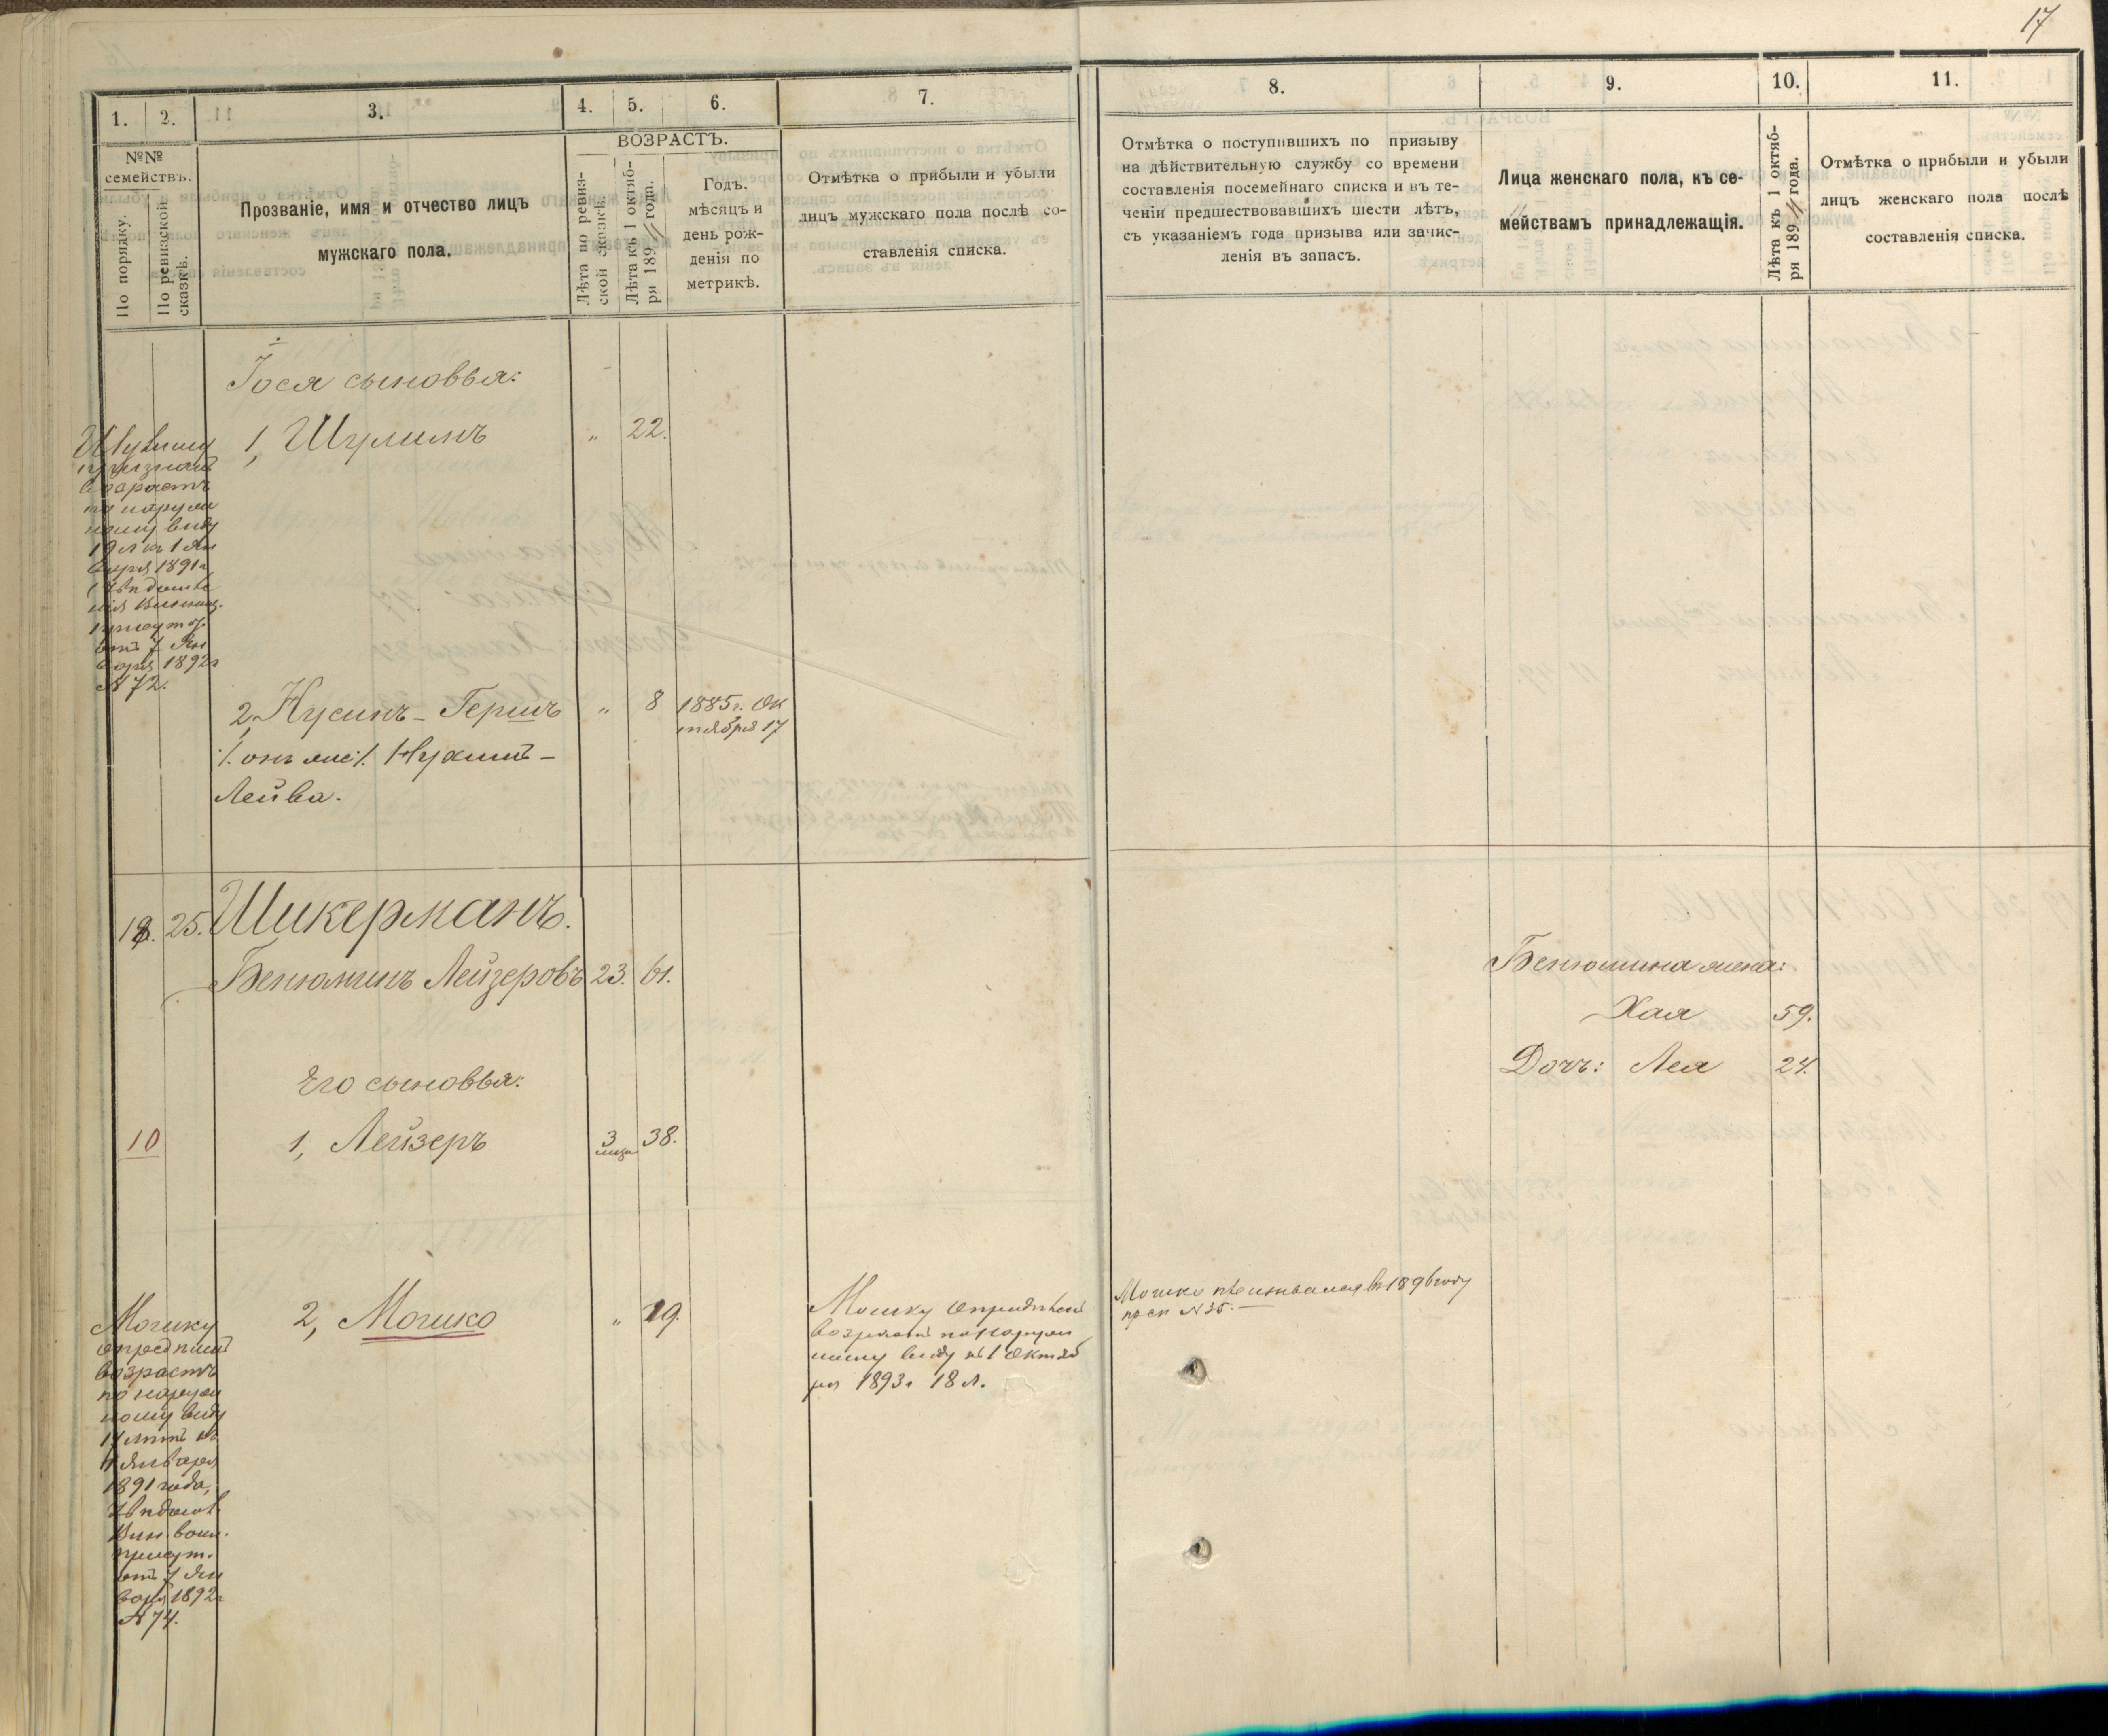 17
1. 2. 3. 4. 5. 6. 7.
№№
семействъ.
По порядку.
По ревизской
сказкѣ.
Прозваніе, имя и отчество лицъ
мужскаго пола.
ВОЗРАСТЪ.
Лѣта по ревиз-
ской сказкѣ.
Лѣта къ 1 октяб-
ря 1894 года.
Годъ.
мѣсяцъ и
день рож-
денія по
метрикѣ.
Отмѣтка о прибыли и убыли
лицъ мужскаго пола послѣ со-
ставленія списка.
8. 9. 10. 11.
Отмѣтка о поступившихъ по призыву
на дѣйствительную службу со времени
составленія посемейнаго списка и въ те-
ченіи предшествовавшихъ шести лѣтъ,
съ указаніемъ года призыва или зачис-
ленія въ запасъ.
Лица женскаго пола, къ се-
мействамъ принадлежащія.
Лѣта къ 1 октяб-
ря 1894 года.
Отмѣтка о прибыли и убыли
лицъ женскаго пола послѣ
составленія списка.
Іося сыновья:
1, Шулимъ " 22.
возрастъ
по наруж
ному виду
19 л къ 1 Ян
варя 1891 г
отъ 7 Ян
варя 1892 г
№ 72.
2, Нусинъ-Гершъ " 8 1885 г. Ок
тября 17
/: онъ же :/ Нухимъ-
Лейва.
18. 25. Шикерманъ.
Бенюминъ Лейзеровъ 23. 61.
Бенюмина жена:
Хая 59.
Дочь: Лея 24.
Его сыновья:
10 1, Лейзеръ 3 38.
2, Мошко " 19.
Мошку
опредѣленъ
возрастъ
по наруж
ному виду
17 лѣтъ къ
1 Января
1891 года,
Вин. воин.
присут.
отъ 7 Ян
варя 1892 г
№ 74.
Мошку опредѣленъ
возрастъ по наруж
ному виду къ 1 Октяб
ря 1893 г 18 л.
Мошко призывался въ 1896 году
пр сп № 35.